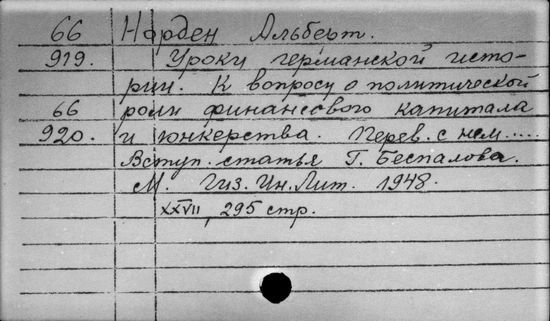 66 Норден Альберт.
919. Уроки германской исто-
рии. К вопросу о политической
66 роли финансового капитала
920. и юнкерства. Перев. с нем.....
Вступ. статья Г. Беспалова.
М. Гиз. Ин. Лит. 1948.
XXVII, 295 стр.